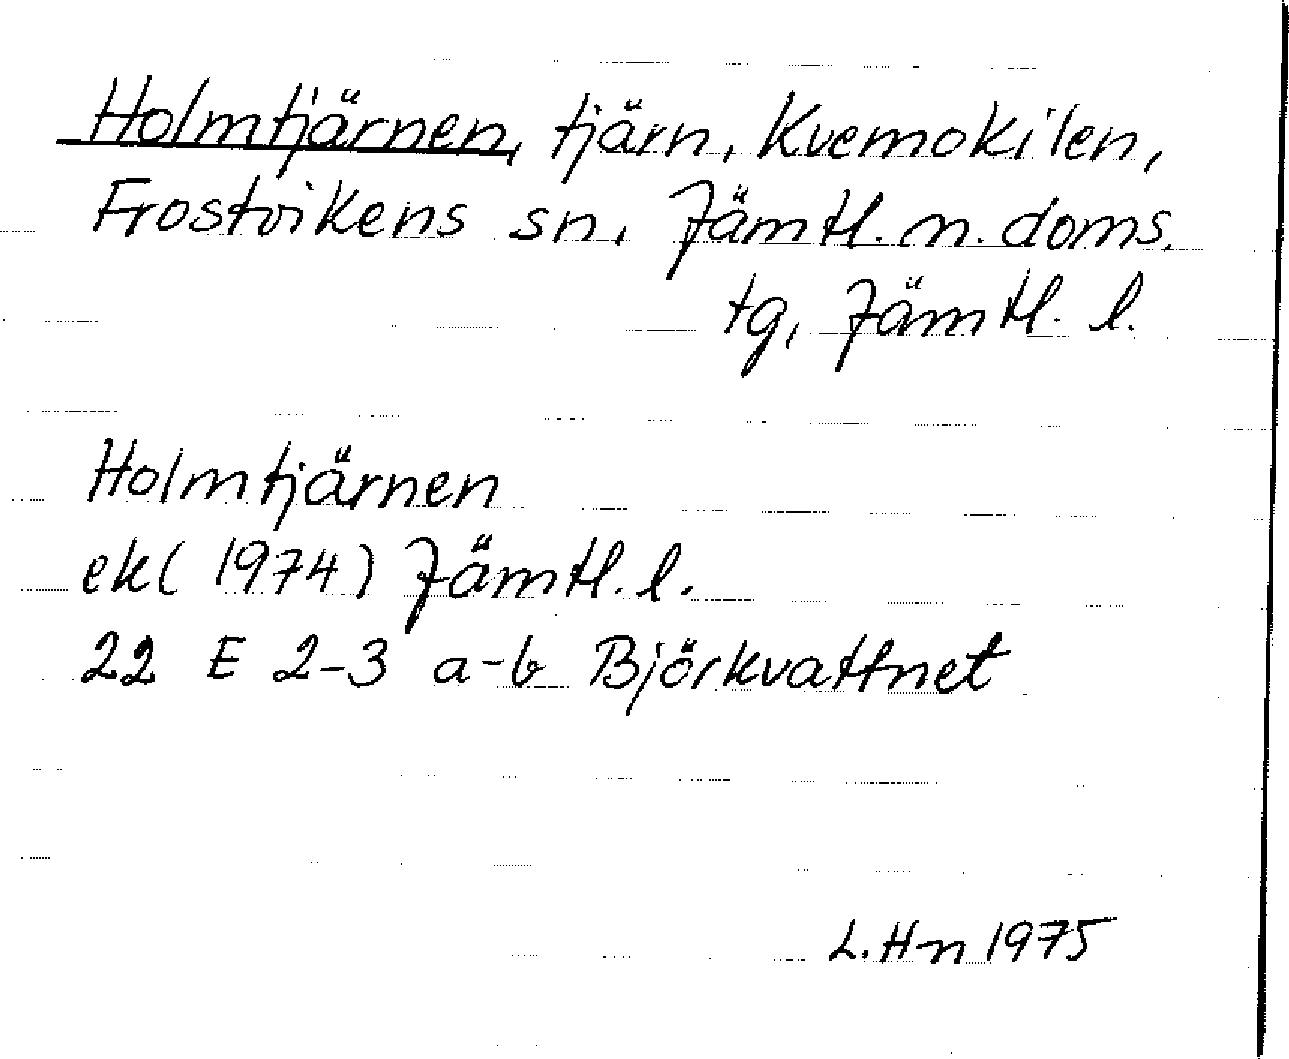 Holmtjärnen, tjärn, Kvemokilen,
Frostvikens sn, Jämtl. n. doms.
tg, Jämtl. l.
Holmtjärnen
ek (1974) Jämtl. l.
22 E 2-3 a-b Björkvattnet
L. Hn 1975